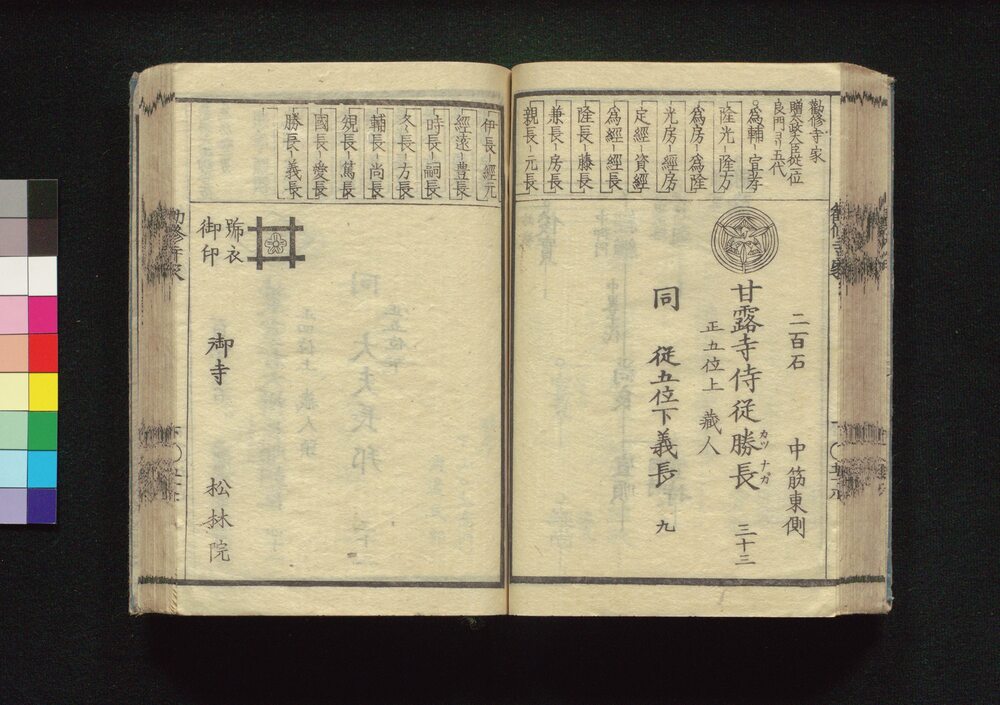 勸修寺家
贈太政大臣從一位
良門ヨリ五代
為輔－宣孝
隆光－隆方
為房－為隆
光房－經房
定經－資經
為經－經長
隆長－藤長
兼長－房長
親長－元長
二百石 中筋東側
甘露寺侍從勝長 カツナガ 三十三
正五位上 藏人
同 從五位下義長 九
伊長－經元
經遠－豊長
時長－嗣長
冬長－方長
輔長－尚長
規長－篤長
國長－愛長
勝長－義長
號衣
御印
御寺 松林院